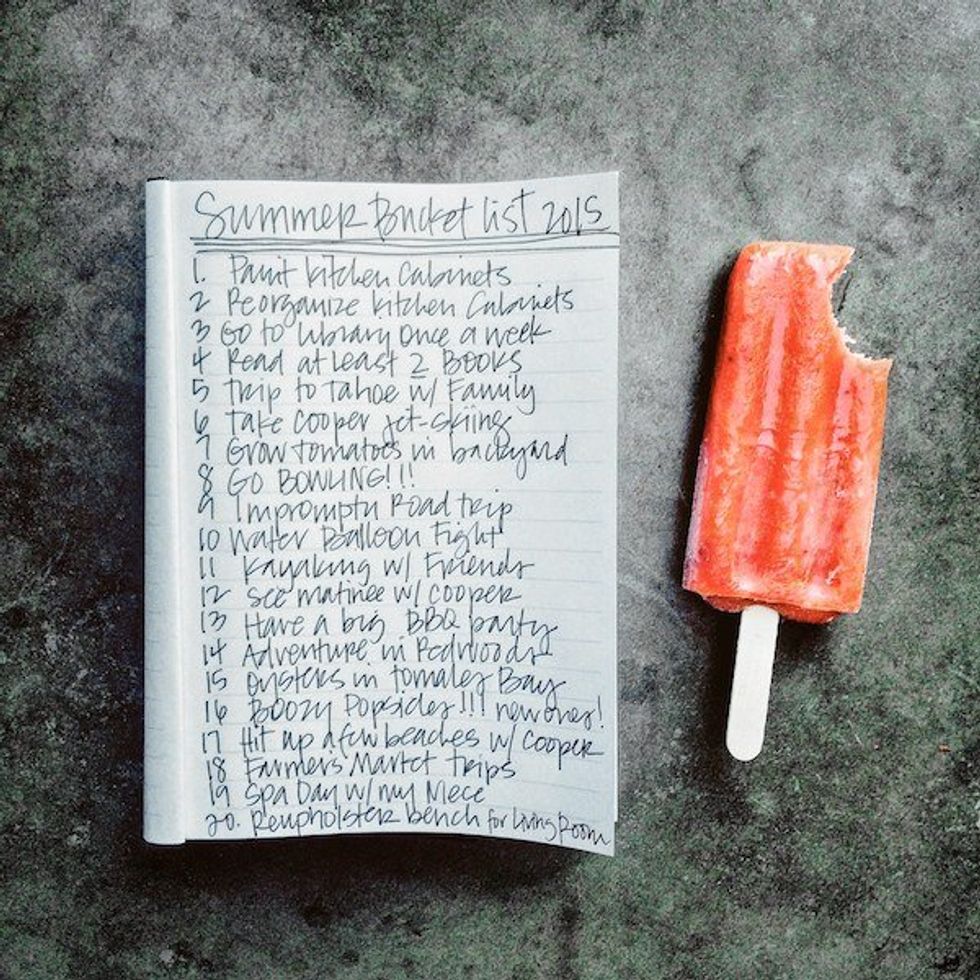 Summer Bucket list 2015
1. Paint kitchen Cabinets
2 Reorganize kitchen Cabinets
3 Go to library once a week
4 Read at least 2 BOOKS
5 Trip to Tahoe w/ Family
6 Take Cooper jet-skiing
7 Grow tomatoes in backyard
8 GO BOWLING!!!
9 Impromptu Road trip
10 Water Balloon Fight
11 Kayaking w/ Friends
12 See matinee w/ Cooper
13 Have a big BBQ party
14 Adventure in Redwoods
15 Oysters in Tomales Bay
16 Boozy Popsicles!!! new ones!
17 Hit up a few beaches w/ Cooper
18 Farmers Market Trips
19 Spa Day w/ my Niece
20. Reupholster bench for Living Room